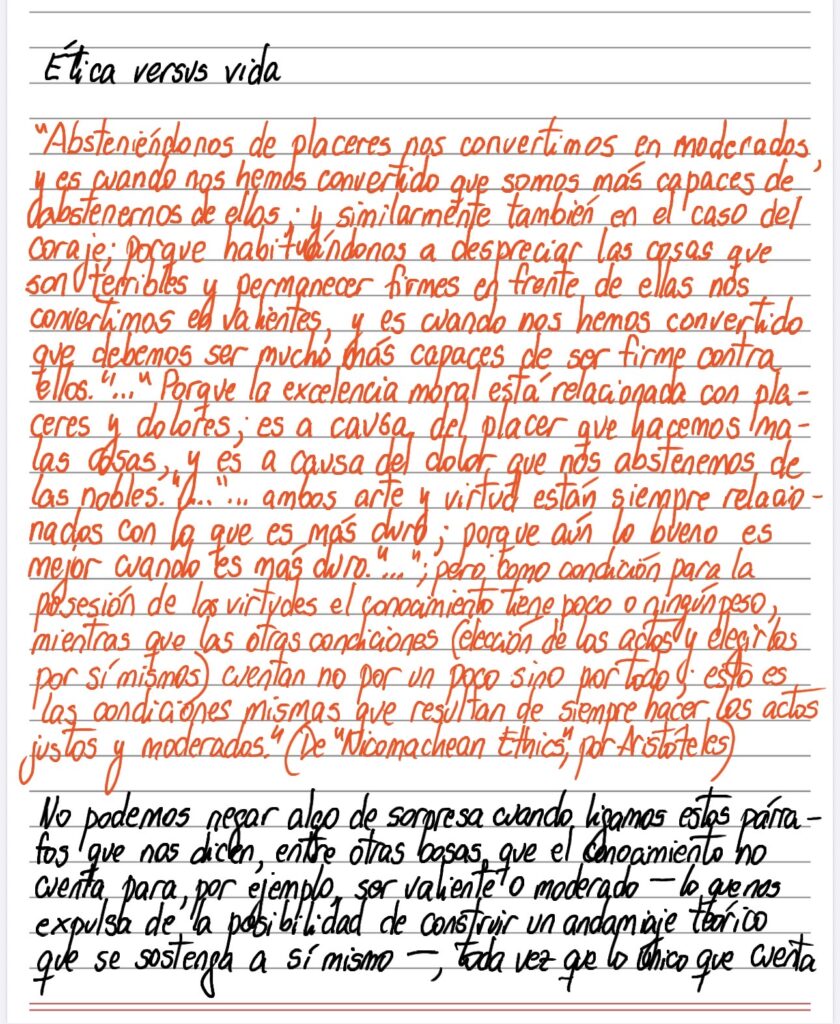 Ética versus vida
"Absteniéndonos de placeres nos convertimos en moderados,
y es cuando nos hemos convertido que somos más capaces de
abstenernos de ellos; y similarmente también en el caso del
coraje; porque habituándonos a despreciar las cosas que
son terribles y permanecer firmes en frente de ellas nos
convertimos en valientes, y es cuando nos hemos convertido
que debemos ser mucho más capaces de ser firme contra
ellos."..." Porque la excelencia moral está relacionada con pla-
ceres y dolores; es a causa del placer que hacemos ma-
las cosas, y es a causa del dolor que nos abstenemos de
las nobles."..."... ambos arte y virtud están siempre relacio-
nados con lo que es más duro; porque aún lo bueno es
mejor cuando es más duro."..."; pero como condición para la
posesión de las virtudes el conocimiento tiene poco o ningún peso,
mientras que las otras condiciones (elección de los actos y elegirlos
por sí mismos) cuentan no por un poco sino por todo; esto es
las condiciones mismas que resultan de siempre hacer los actos
justos y moderados." (De "Nicomachean Ethics", por Aristóteles)
No podemos negar algo de sorpresa cuando ligamos estos párra-
fos que nos dicen, entre otras cosas, que el conocimiento no
cuenta para, por ejemplo, ser valiente o moderado — lo que nos
expulsa de la posibilidad de construir un andamiaje teórico
que se sostenga a sí mismo —, toda vez que lo único que cuenta